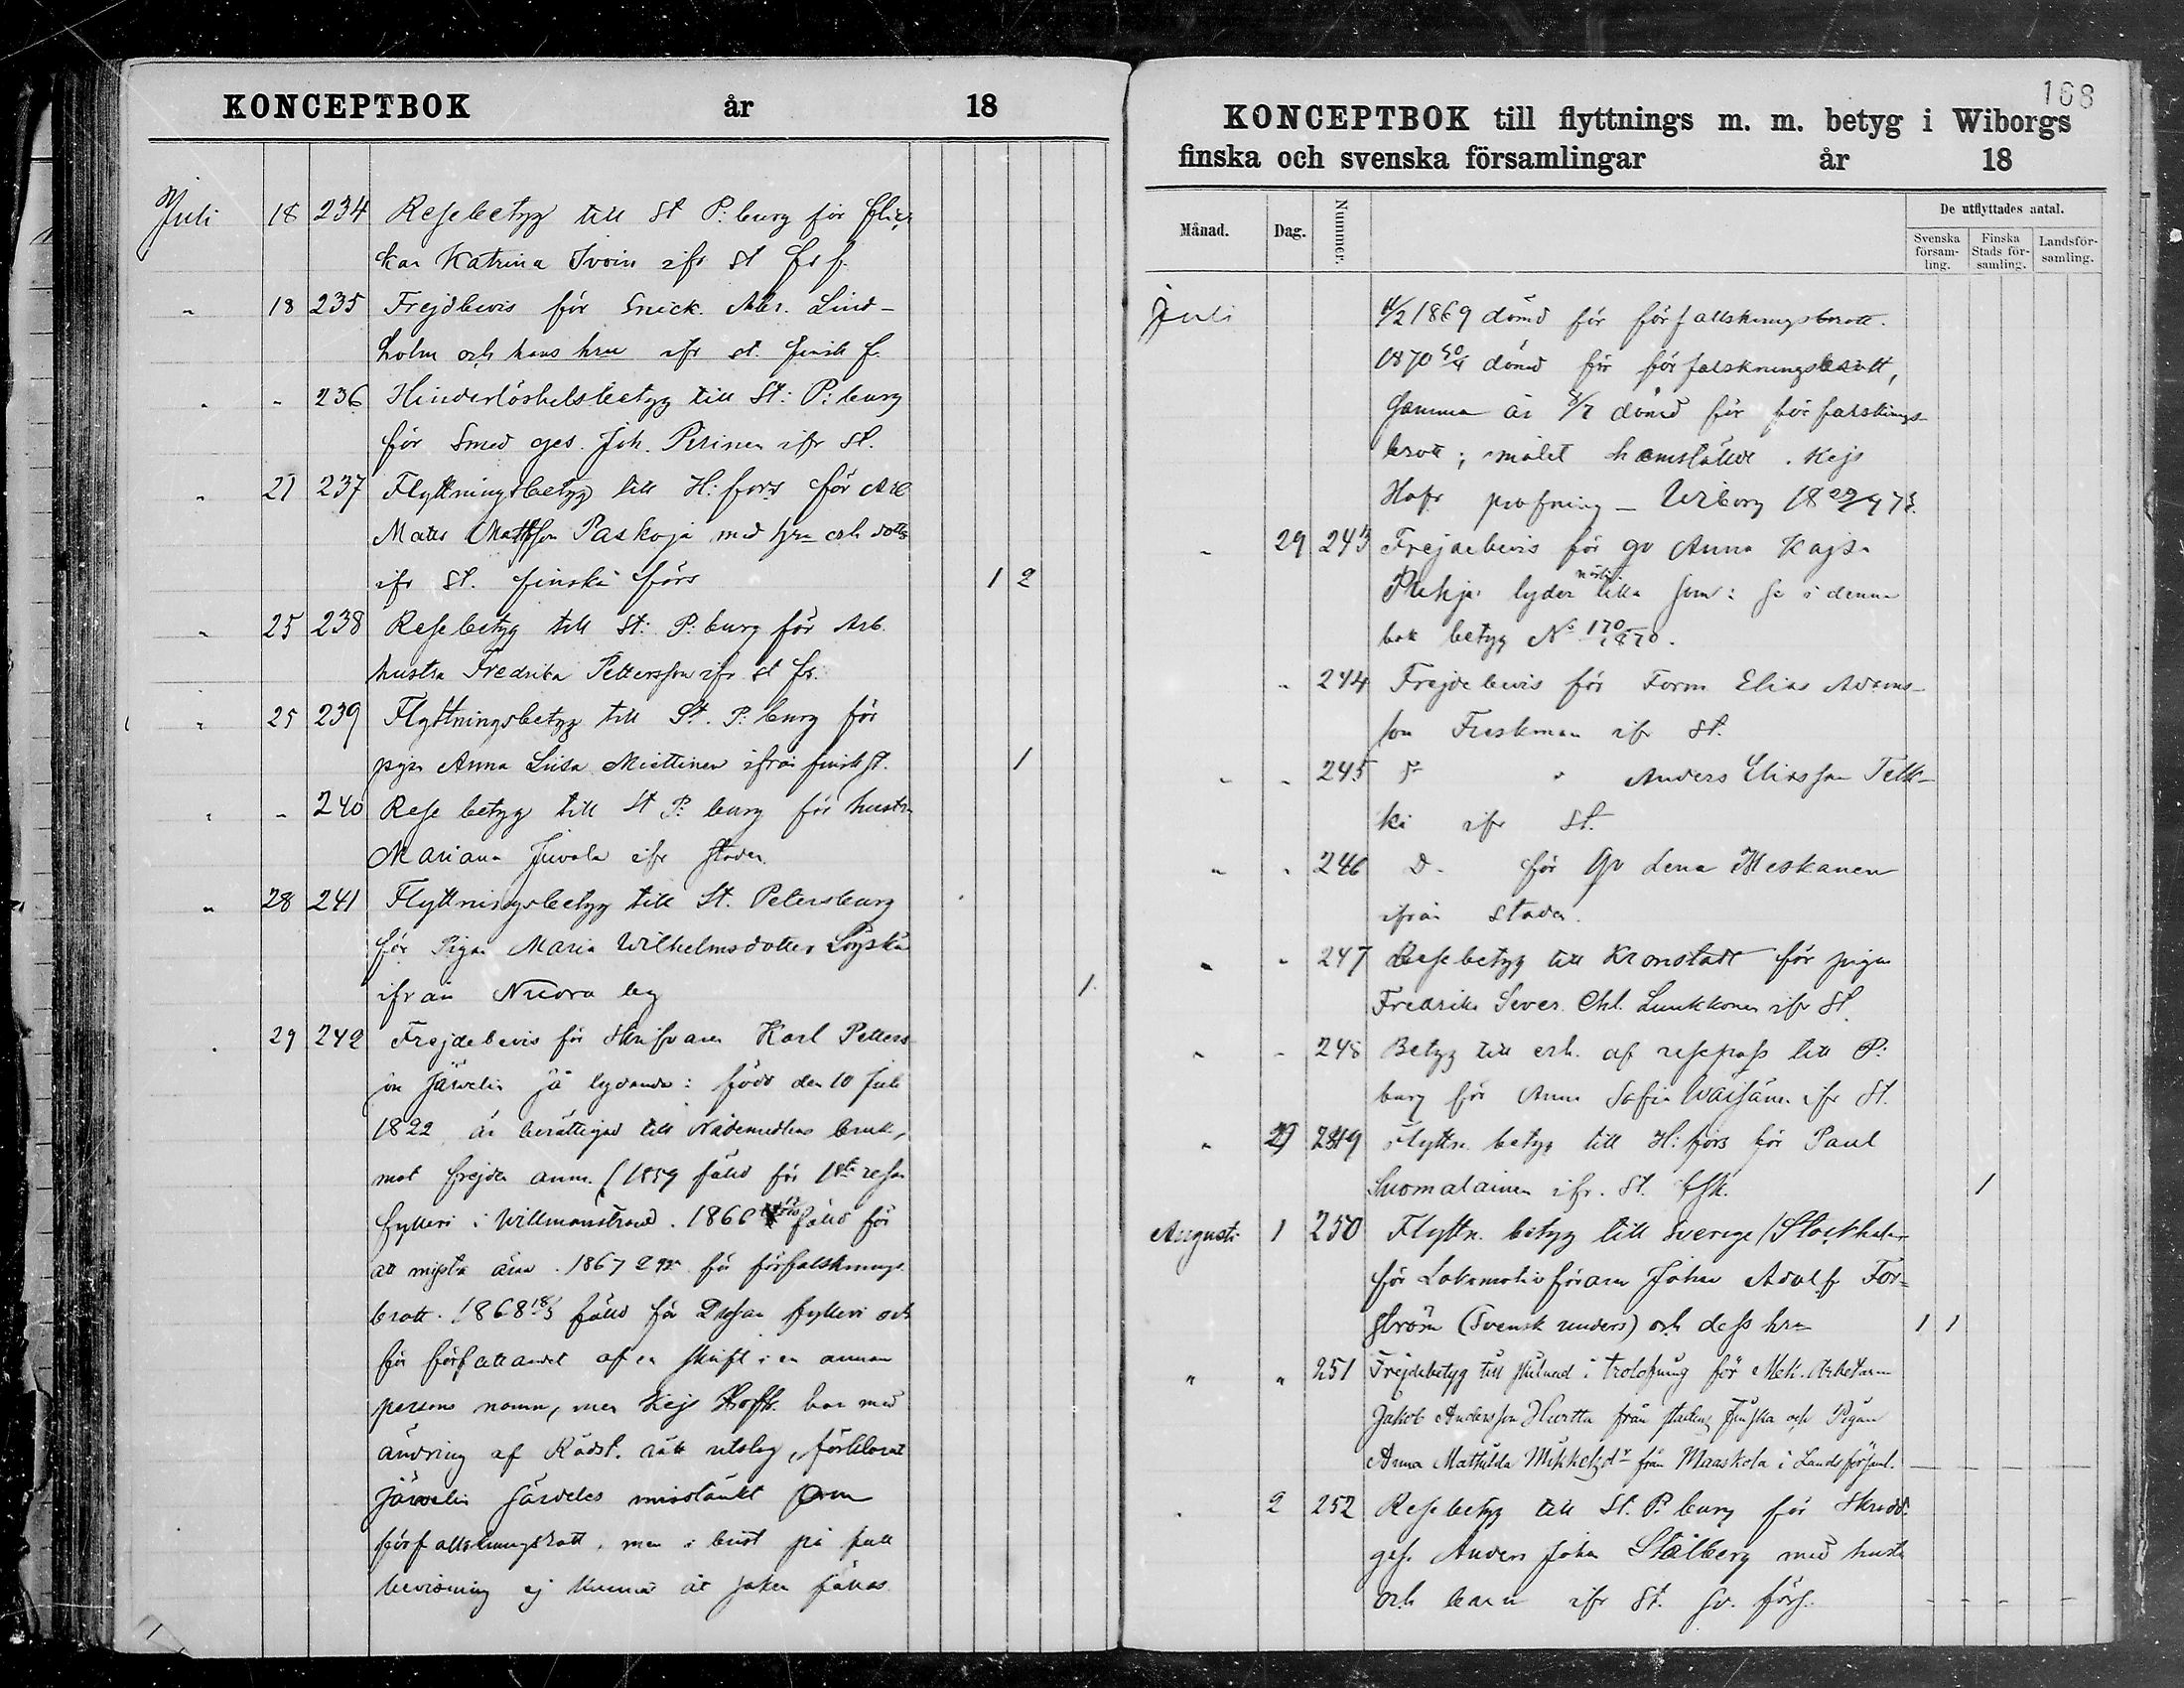 KONCEPTBOK år 18
Juli 18 234 Resebetyg till St P:burg för flic
kan Katrina Ivoin ifr St
" 18 235 Frejdbevis för Snick. Abr. Lind-
holm och hans hru ifr st. finsk f.
" " 236 Hinderlöshetsbetyg till St: P:burg
för Smed ges. Joh. Pirinen ifr St.
" 21 237 Flyttningsbetyg till H:fors för Arb
Mats Mattsson Paskoja med hru och dotter
ifr St. finska förs 1 2
" 25 238 Resebetyg till St: P:burg för Arb.
hustru Fredrika Pettersson ifr St
" 25 239 Flyttningsbetyg till St. P:burg för
pigan Anna Liisa Miettinen ifrån finsk st. 1
" " 240 Rese betyg till St P:burg för hustru
Mariana Juvola ifr staden
" 28 241 Flyttningsbetyg till St. Petersburg
för Pigan Maria Wilhelmsdotter
ifrån Nuora by 1
" 29 242 Frejdebevis för Skrifvaren Karl Petters
on Järvelin så lydande: född den 10 Juli
1822 är berättigad till Nådemedlens bruk,
mot frejden anm. (1859 fälld för 1sta resan
fylleri i Willmanstrand. 1866 fälld för
att mista äran. 1867 för förfalskningsbrott.
1868 18/3 fälld för 2 resan fylleri och
för författandet af en skrift i en annan
persons namn, men Kejs Hofr. har med
ändring af Rådst. rätt utslag, förklarat
Järvelin särdeles misstänkt
förfallskningsbrott, men i brist på full
bevisning ej kunna åt saken fällas
168
KONCEPTBOK till flyttnings m. m. betyg i Wiborgs
finska och svenska församlingar år 18
Månad. Dag. Nummer. De utflyttades antal.
Svenska försam-ling. Finska Stads för-samling. Landsför-samling.
Juli 1869 dömd för förfallskningsbrott.
1870 dömd för förfalskningsbrott,
samma år 8/7 dömd för förfalsknings-
brott; målet hemstäldt. Kejs
Hofr pröfning — Wiborg 18 29/7 73.
" 29 243 Frejdebevis för gv Anna Kajsa
lyder lika som: se i denna
bok betyg No 170/1870.
" 244 Frejdebevis för Form Elias Adams-
son Fruskman ifr St.
" " 245 " Anders Eliasson Telk-
ki ifr St.
" " 246 D. för Gv Lena Meskanen
ifrån staden.
" " 247 Resebetyg till Kronstadt för pigan
Fredrika Sever. Chl. Lunkkonen ifr St.
" " 248 Betyg till erh. af resepass till P:
burg för Anna Sofia Wäisänen ifr St.
" 29 249 Flyttn. betyg till H:fors för Paul
Suomalainen ifr. St. 1
Augusti 1 250 Flyttn. betyg till Sverige/Stockholm
för Lokomotivföraren Johan Adolf For-
ström (Svensk unders) och dess hru 1 1
" " 251 Frejdebetyg till skilnad i trolofning för Mek. Arbetaren
Jakob Andersson Hurtta från stadens Finska och Pigan
Anna Mathilda Mikkelsdr från Maaskola i Landsförsaml.
" 2 252 Resebetyg till St. P:burg för Skredd.
ges. Anders Johan Stålberg med hustru
och barn ifr St. sv. förs.